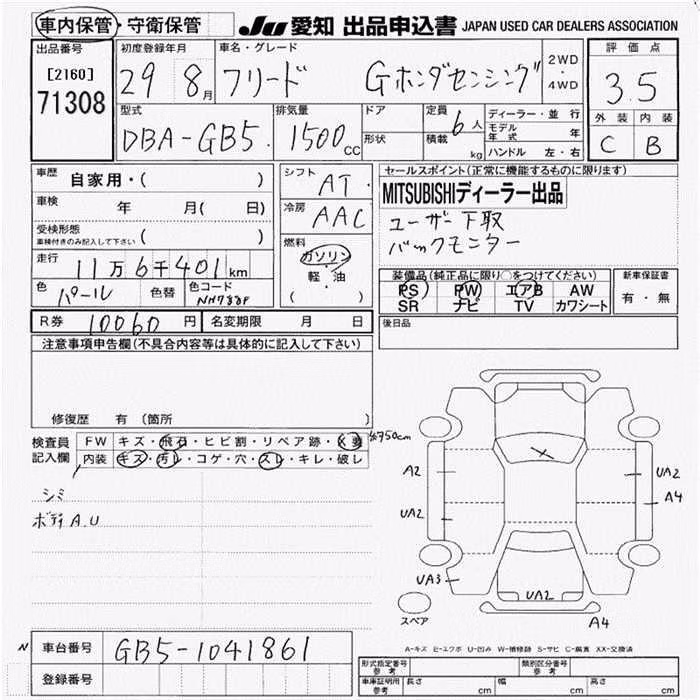 車内保管・守衛保管 JU 愛知 出品申込書 JAPAN USED CAR DEALERS ASSOCIATION
出品番号 初度登録年月 車名・グレード 2WD・4WD 評価点
[2160] 29 8月 フリード Gホンダセンシング 3.5
71308
型式 排気量 ドア 定員 6人 ディーラー・並行 外装 内装
DBA-GB5. 1500cc 形状 積載 kg モデル年式 年 C B
ハンドル 左・右
車歴 自家用・( ) シフト AT. セールスポイント(正常に機能するものに限ります)
車検 年 月( 日) 冷房 AAC MITSUBISHIディーラー出品
受検形態 ( ) ユーザー下取
車検付きのみ記入して下さい バックモニター
走行 11万6千401km 燃料 ガソリン
軽・油
( )
色 パール 色替 色コード NH788P
装備品(純正品に限り○をつけてください) 新車保証書
PS PW エアB AW 有・無
SR ナビ TV カワシート
R券 10060円 名変期限 月 日 後日品
注意事項申告欄(不具合内容等は具体的に記入して下さい)
修復歴 有 (箇所 )
検査員記入欄 FW キズ・飛石・ヒビ割・リペア跡・X要
内装 キズ・汚レ・コゲ・穴・スレ・キレ・破レ
シミ
ボディA.U
A2
UA2
UA2
A4
UA3
UA2
A4
スペア
A-キズ E-エクボ U-凹み W-補修跡 S-サビ C-腐食 XX-交換済
N 車台番号 GB5-1041861
登録番号
形式指定番号 参考 類別区分番号 参考
車庫証明用 参考 長さ cm 幅 cm 高さ cm